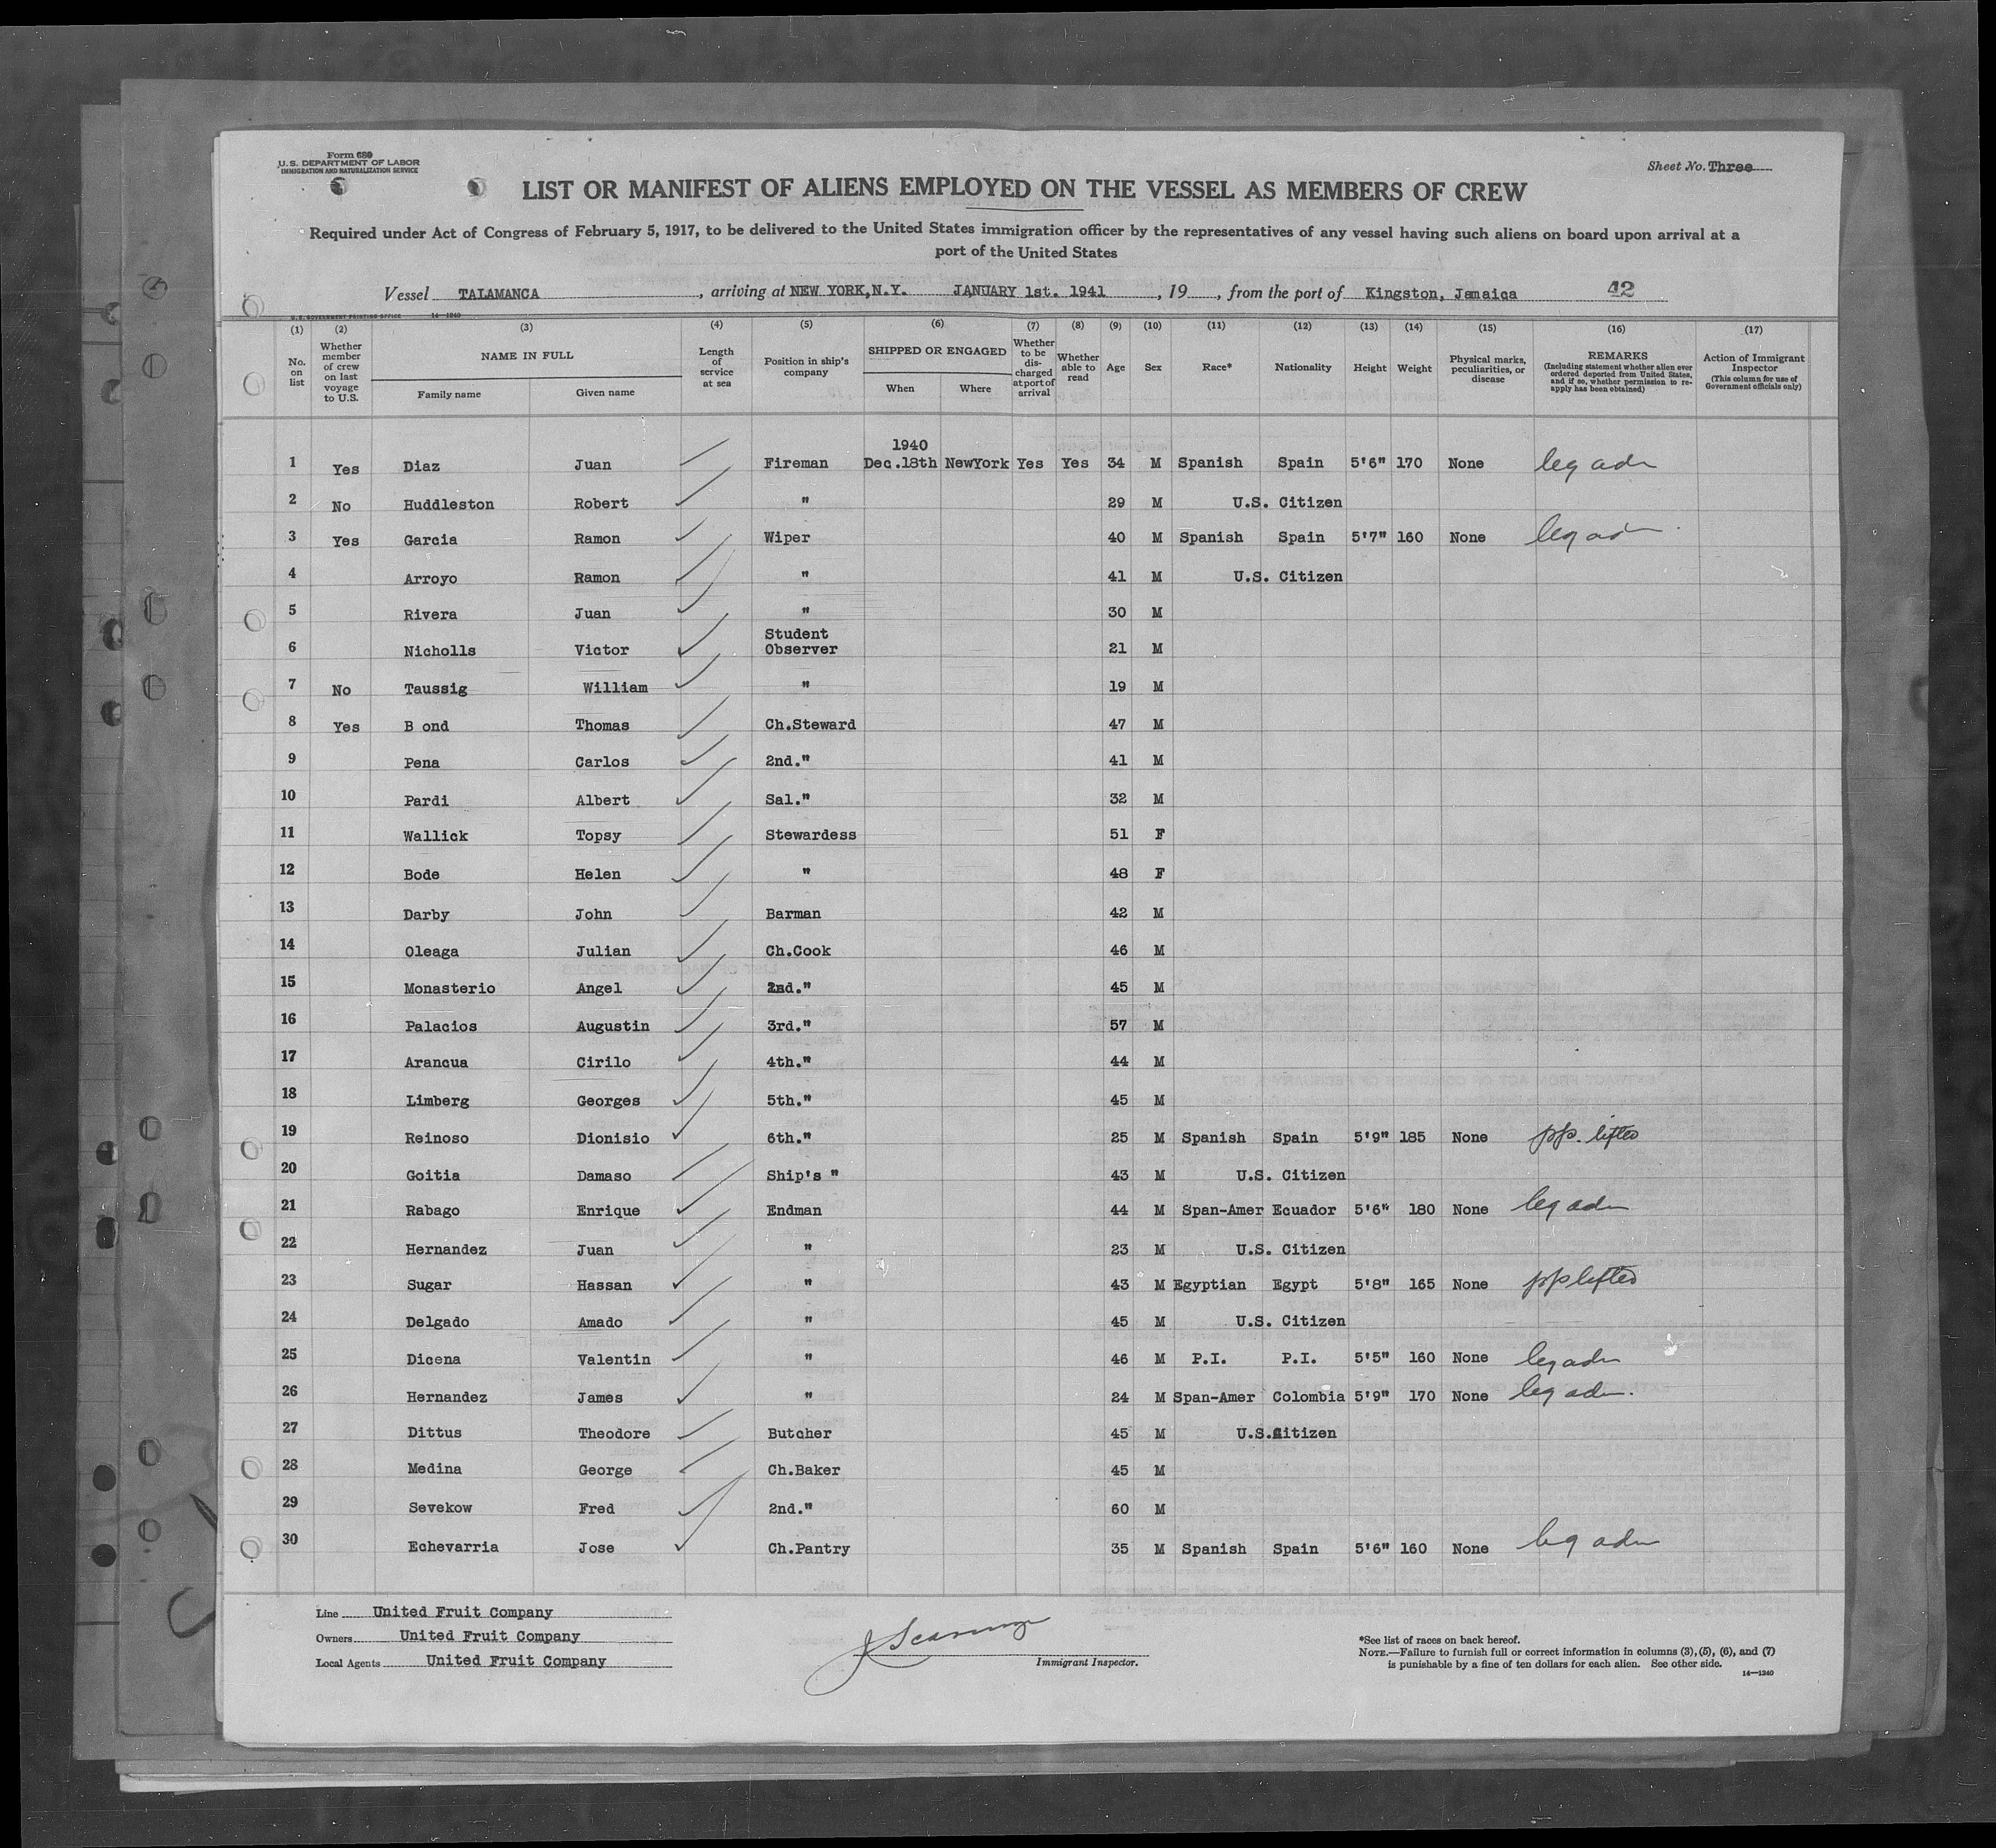 Form 680
U.S. DEPARTMENT OF LABOR
IMMIGRATION AND NATURALIZATION SERVICE
Sheet No. Three
LIST OR MANIFEST OF ALIENS EMPLOYED ON THE VESSEL AS MEMBERS OF CREW
Required under Act of Congress of February 5, 1917, to be delivered to the United States immigration officer by the representatives of any vessel having such aliens on board upon arrival at a
port of the United States
Vessel TALAMANCA, arriving at NEW YORK,N.Y. JANUARY 1st. 1941, 19, from the port of Kingston, Jamaica 42
U. S. GOVERNMENT PRINTING OFFICE 14—1240
(1) (2) (3) (4) (5) (6) (7) (8) (9) (10) (11) (12) (13) (14) (15) (16) (17)
No. on list Whether member of crew on last voyage to U.S. NAME IN FULL Family name Given name Length of service at sea Position in ship's company SHIPPED OR ENGAGED When Where Whether to be discharged at port of arrival Whether able to read Age Sex Race* Nationality Height Weight Physical marks, peculiarities, or disease REMARKS (Including statement whether alien ever ordered deported from United States, and if so, whether permission to reapply has been obtained) Action of Immigrant Inspector (This column for use of Government officials only)
1940
1 Yes Diaz Juan Fireman Dec.18th NewYork Yes Yes 34 M Spanish Spain 5'6" 170 None leg adm
2 No Huddleston Robert " 29 M U.S. Citizen
3 Yes Garcia Ramon Wiper 40 M Spanish Spain 5'7" 160 None leg ad
4 Arroyo Ramon " 41 M U.S. Citizen
5 Rivera Juan " 30 M
Student
6 Nicholls Victor Observer 21 M
7 No Taussig William " 19 M
8 Yes B ond Thomas Ch.Steward 47 M
9 Pena Carlos 2nd." 41 M
10 Pardi Albert Sal." 32 M
11 Wallick Topsy Stewardess 51 F
12 Bode Helen " 48 F
13 Darby John Barman 42 M
14 Oleaga Julian Ch.Cook 46 M
15 Monasterio Angel 2nd." 45 M
16 Palacios Augustin 3rd." 57 M
17 Arancua Cirilo 4th." 44 M
18 Limberg Georges 5th." 45 M
19 Reinoso Dionisio 6th." 25 M Spanish Spain 5'9" 185 None pp. lifted
20 Goitia Damaso Ship's " 43 M U.S. Citizen
21 Rabago Enrique Endman 44 M Span-Amer Ecuador 5'6" 180 None leg adm
22 Hernandez Juan " 23 M U.S. Citizen
23 Sugar Hassan " 43 M Egyptian Egypt 5'8" 165 None pp lifted
24 Delgado Amado " 45 M U.S. Citizen
25 Dicena Valentin " 46 M P.I. P.I. 5'5" 160 None leg adm
26 Hernandez James " 24 M Span-Amer Colombia 5'9" 170 None leg adm.
27 Dittus Theodore Butcher 45 M U.S.Citizen
28 Medina George Ch.Baker 45 M
29 Sevekow Fred 2nd." 60 M
30 Echevarria Jose Ch.Pantry 35 M Spanish Spain 5'6" 160 None leg adm
Line United Fruit Company
Owners United Fruit Company
Local Agents United Fruit Company
Immigrant Inspector.
*See list of races on back hereof.
NOTE.—Failure to furnish full or correct information in columns (3), (5), (6), and (7)
is punishable by a fine of ten dollars for each alien. See other side.
14—1240